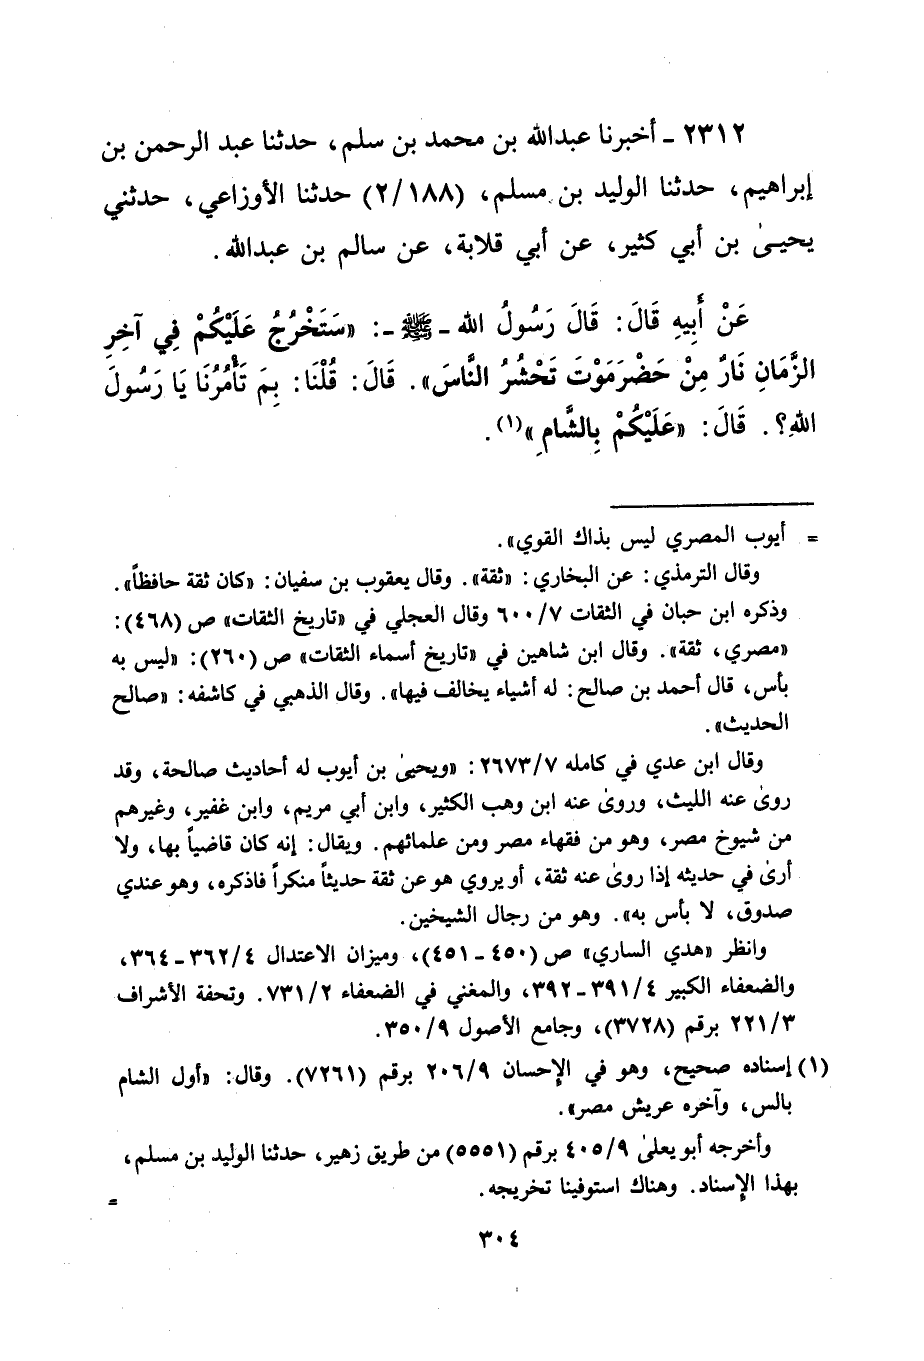 ٢٣١٢ ـ أخبرنا عبدالله بن محمد بن سلم، حدثنا عبد الرحمن بن
إبراهيم، حدثنا الوليد بن مسلم، (٢/١٨٨) حدثنا الأوزاعي، حدثني
يحيىٰ بن أبي كثير، عن أبي قلابة، عن سالم بن عبدالله.
عَنْ أَبِيهِ قَالَ: قَالَ رَسُولُ الله ـ ﷺ ـ: «سَتَخْرُجُ عَلَيْكُمْ فِي آخِرِ
الزَّمَانِ نَارٌ مِنْ حَضْرَمَوْتَ تَحْشُرُ النَّاسَ». قَالَ: قُلْنَا: بِمَ تَأْمُرُنَا يَا رَسُولَ
اللهِ؟. قَالَ: «عَلَيْكُمْ بِالشَّامِ»(١).
= أيوب المصري ليس بذاك القوي».
وقال الترمذي: عن البخاري: «ثقة». وقال يعقوب بن سفيان: «كان ثقة حافظاً».
وذكره ابن حبان في الثقات ٦٠٠/٧ وقال العجلي في «تاريخ الثقات» ص (٤٦٨):
«مصري، ثقة». وقال ابن شاهين في «تاريخ أسماء الثقات» ص (٢٦٠): «ليس به
بأس، قال أحمد بن صالح: له أشياء يخالف فيها». وقال الذهبي في كاشفه: «صالح
الحديث».
وقال ابن عدي في كامله ٢٦٧٣/٧: «ويحيىٰ بن أيوب له أحاديث صالحة، وقد
روىٰ عنه الليث، وروىٰ عنه ابن وهب الكثير، وابن أبي مريم، وابن غفير، وغيرهم
من شيوخ مصر، وهو من فقهاء مصر ومن علمائهم. ويقال: إنه كان قاضياً بها، ولا
أرىٰ في حديثه إذا روىٰ عنه ثقة، أو يروي هو عن ثقة حديثاً منكراً فاذكره، وهو عندي
صدوق، لا بأس به». وهو من رجال الشيخين.
وانظر «هدي الساري» ص (٤٥٠ ـ ٤٥١)، وميزان الاعتدال ٣٦٢/٤ ـ ٣٦٤،
والضعفاء الكبير ٣٩١/٤ ـ ٣٩٢، والمغني في الضعفاء ٧٣١/٢. وتحفة الأشراف
٢٢١/٣ برقم (٣٧٢٨)، وجامع الأصول ٣٥٠/٩.
(١) إسناده صحيح، وهو في الإحسان ٢٠٦/٩ برقم (٧٢٦١). وقال: «أول الشام
بالس، وآخره عريش مصر».
وأخرجه أبو يعلىٰ ٤٠٥/٩ برقم (٥٥٥١) من طريق زهير، حدثنا الوليد بن مسلم،
بهذا الإسناد. وهناك استوفينا تخريجه. =
٣٠٤